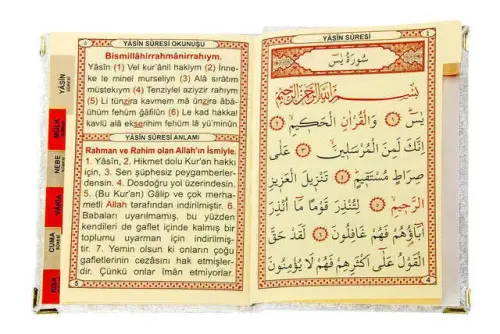 YÂSİN SÛRESİ OKUNUŞU
Bismillâhirrahmânirrahıym.
Yâsîn (1) Vel kur'ânil hakiym (2) İnne-
ke le minel murseliyn (3) Alâ sırâtım
müstekıym (4) Tenziylel aziyzir rahıym
(5) Li tünzira kavmem mâ ünzira âbâ-
ühüm fehüm ğâfilûn (6) Le kad hakkal
kavlü alâ ekserihim fehüm lâ yü'minûn
YÂSİN SÛRESİ ANLAMI
Rahman ve Rahim olan Allah'ın İsmiyle.
1. Yâsîn, 2. Hikmet dolu Kur'an hakkı
için, 3. Sen şüphesiz peygamberler-
densin. 4. Dosdoğru yol üzerindesin.
5. (Bu Kur'an) Gâlip ve çok merha-
metli Allah tarafından indirilmiştir. 6.
Babaları uyarılmamış, bu yüzden
kendileri de gaflet içinde kalmış bir
toplumu uyarman için indirilmiş-
tir. 7. Yemin olsun ki onların çoğu
gafletlerinin cezasını hak etmişler-
dir. Çünkü onlar îmân etmiyorlar.
5
YÂSİN
MÜLK
NEBE
VÂKIA
CUMA
YÂSİN SÛRESİ
سُورَةُ يٰسٓ
بِسْمِ اللهِ الرَّحْمٰنِ الرَّحِيمِ
يٰسٓ ﴿١﴾ وَالْقُرْاٰنِ الْحَكِيمِ ﴿٢﴾
اِنَّكَ لَمِنَ الْمُرْسَلِينَ ﴿٣﴾ عَلٰى
صِرَاطٍ مُسْتَقِيمٍ ﴿٤﴾ تَنْزِيلَ الْعَزِيزِ
الرَّحِيمِ ﴿٥﴾ لِتُنْذِرَ قَوْمًا مَٓا اُنْذِرَ
اٰبَٓاؤُهُمْ فَهُمْ غَافِلُونَ ﴿٦﴾ لَقَدْ حَقَّ
الْقَوْلُ عَلٰٓى اَكْثَرِهِمْ فَهُمْ لَا يُؤْمِنُونَ
4